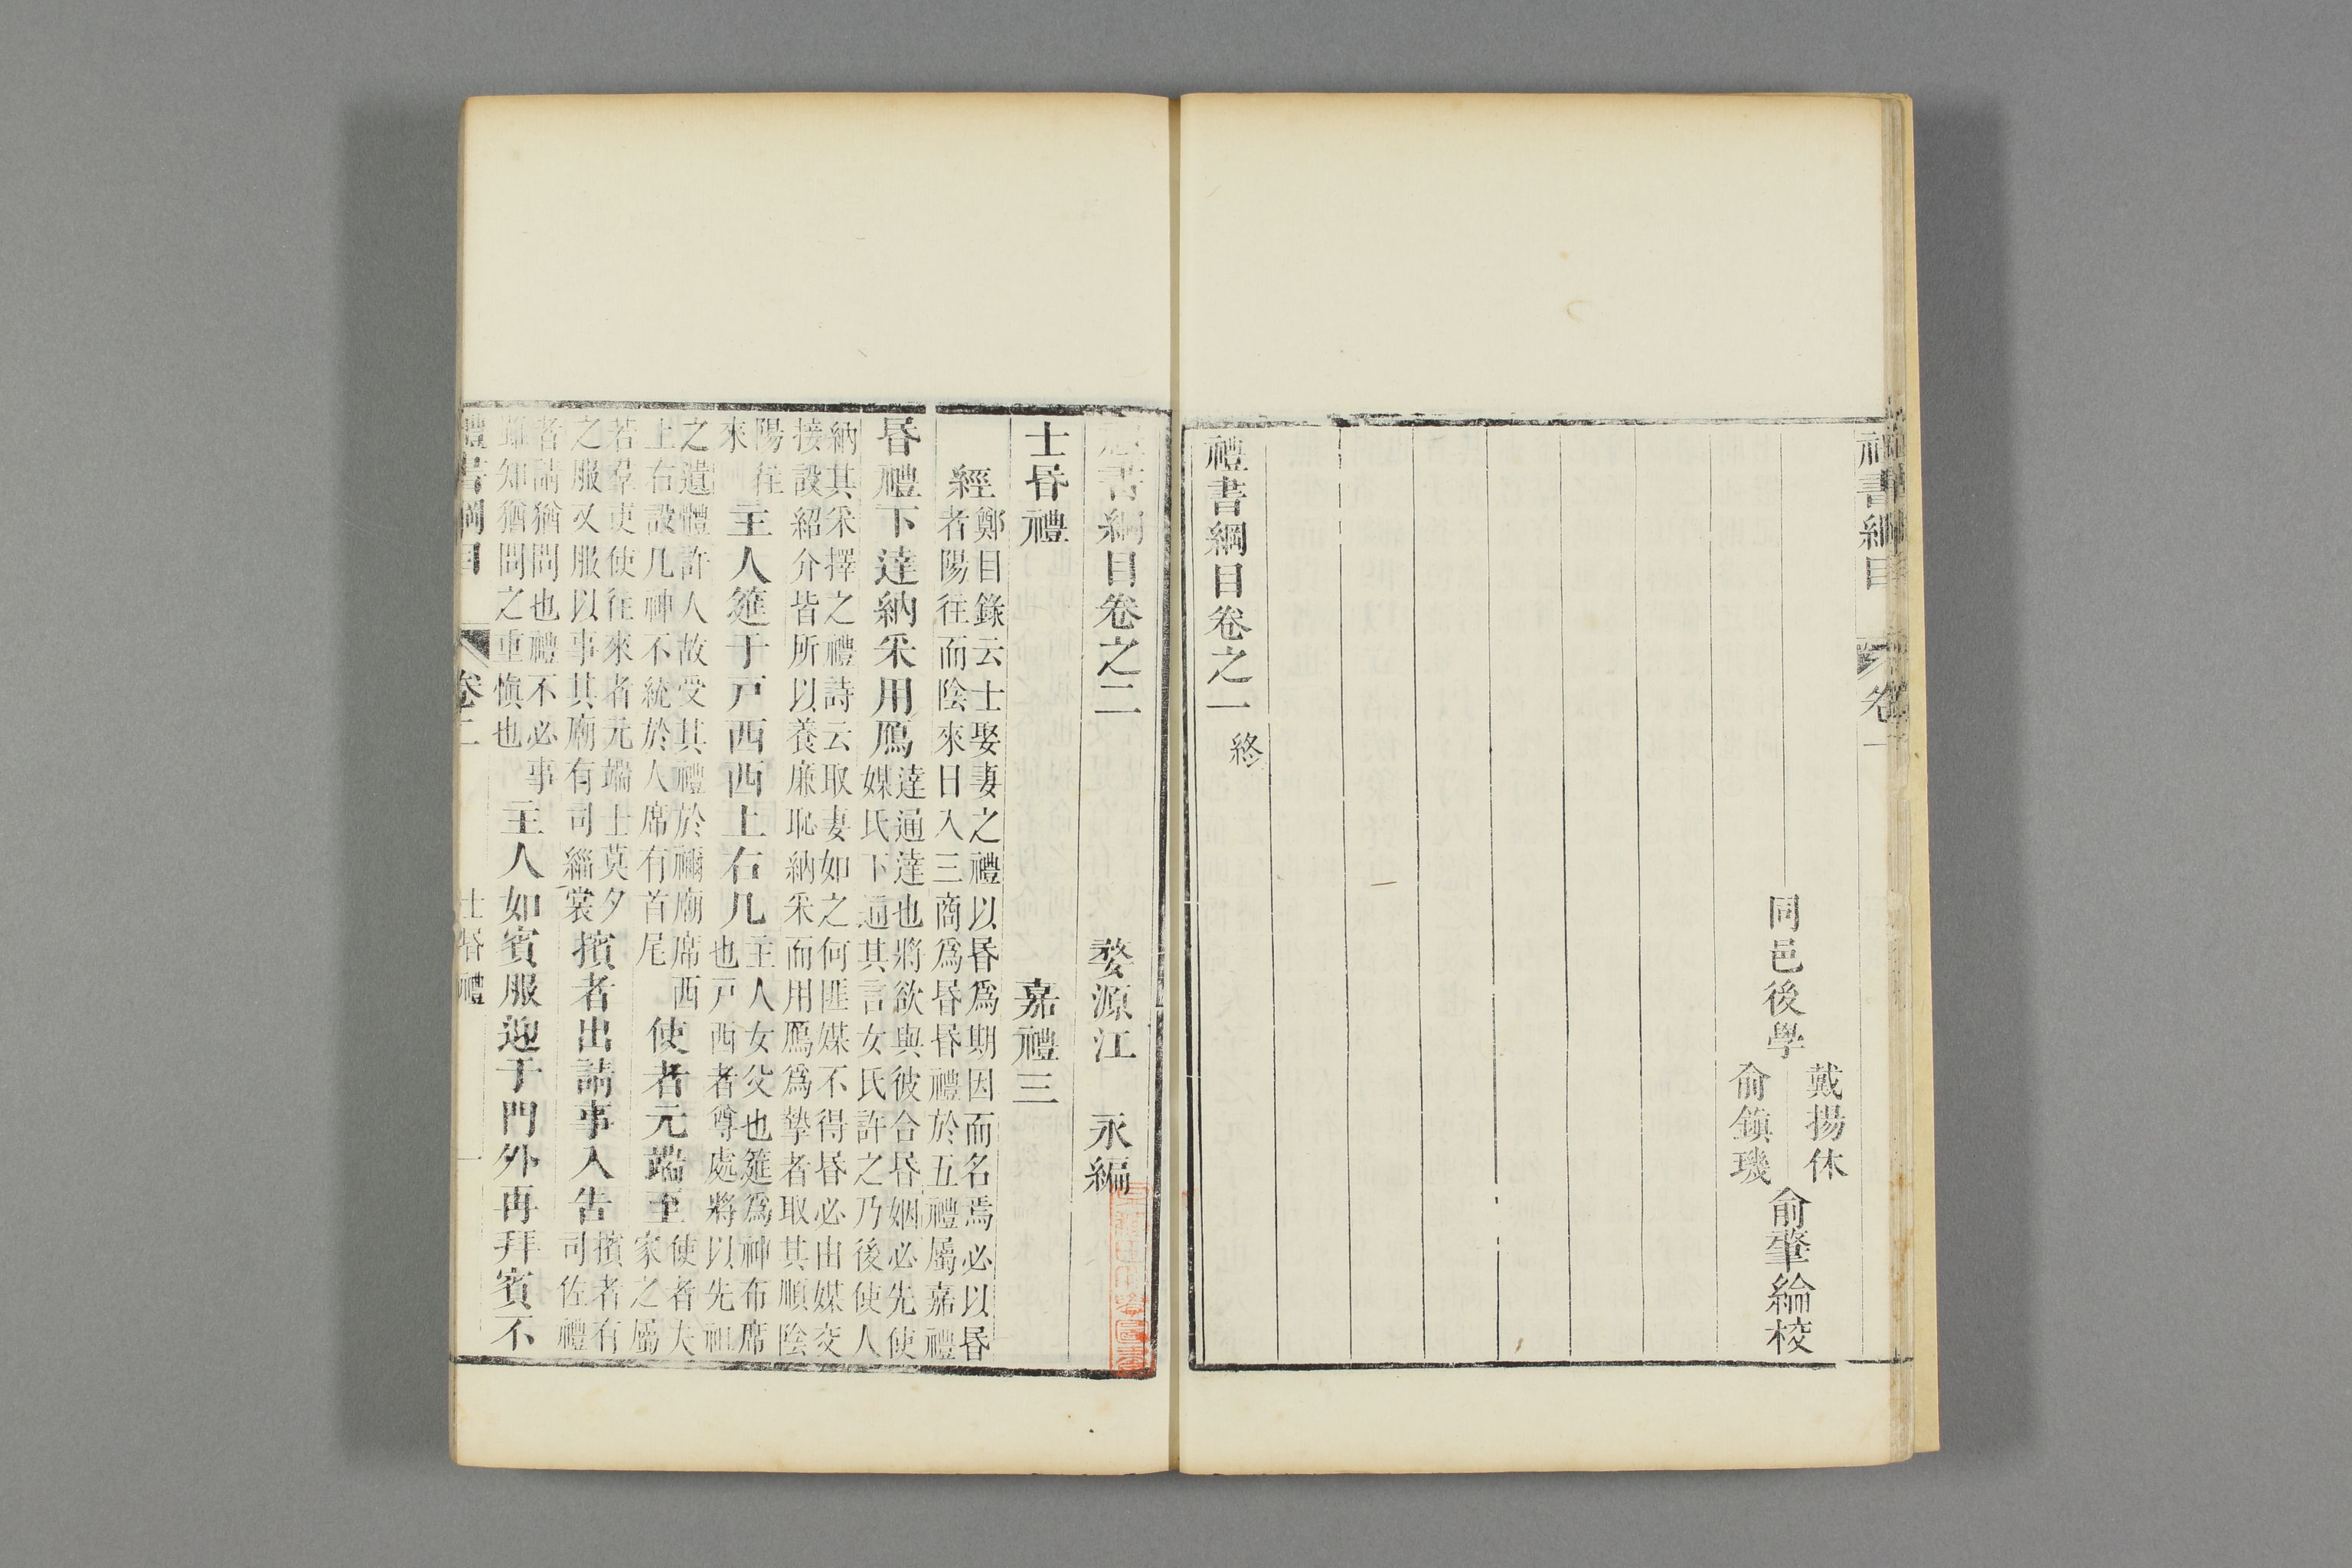 禮書綱目 卷一
同邑後學 戴揚休 俞鎮璣 俞肇綸校
禮書綱目卷之一終
禮書綱目卷之二 婺源江 永編
士昏禮 嘉禮三
經鄭目錄云士娶妻之禮以昏爲期因而名焉必以昏
者陽往而陰來日入三商爲昏昏禮於五禮屬嘉禮
昏禮下達納采用鴈達通達也將欲與彼合昏姻必先使
媒氏下通其言女氏許之乃後使人
納其采擇之禮詩云取妻如之何匪媒不得昏必由媒交
接設紹介皆所以養廉恥納采而用鴈爲摯者取其順陰
陽往
來主人筵于戸西西上右几主人女父也筵爲神布席
也戸西者尊處將以先祖
之遺體許人故受其禮於禰廟席西
上右設几神不統於人席有首尾使者元端至使者夫
家之屬
若羣吏使往來者元端士莫夕
之服又服以事其廟有司緇裳擯者出請事入告擯者有
司佐禮
者請猶問也禮不必事
雖知猶問之重愼也主人如賓服迎于門外再拜賓不
禮書綱目 卷二 士昏禮 一